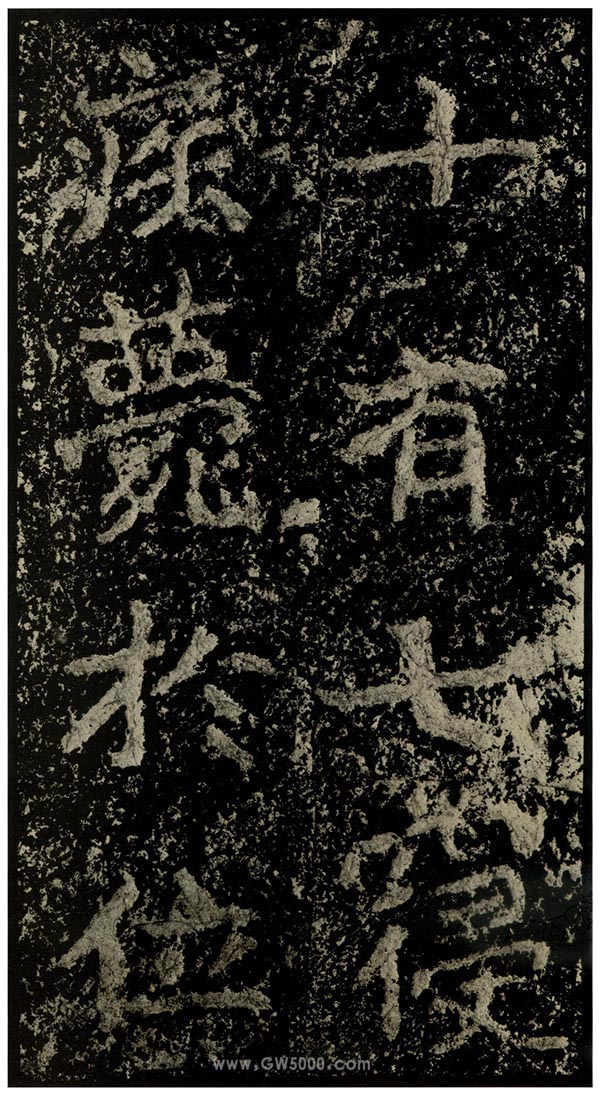 十有七寑
疾薨於位
www.GW5000.com